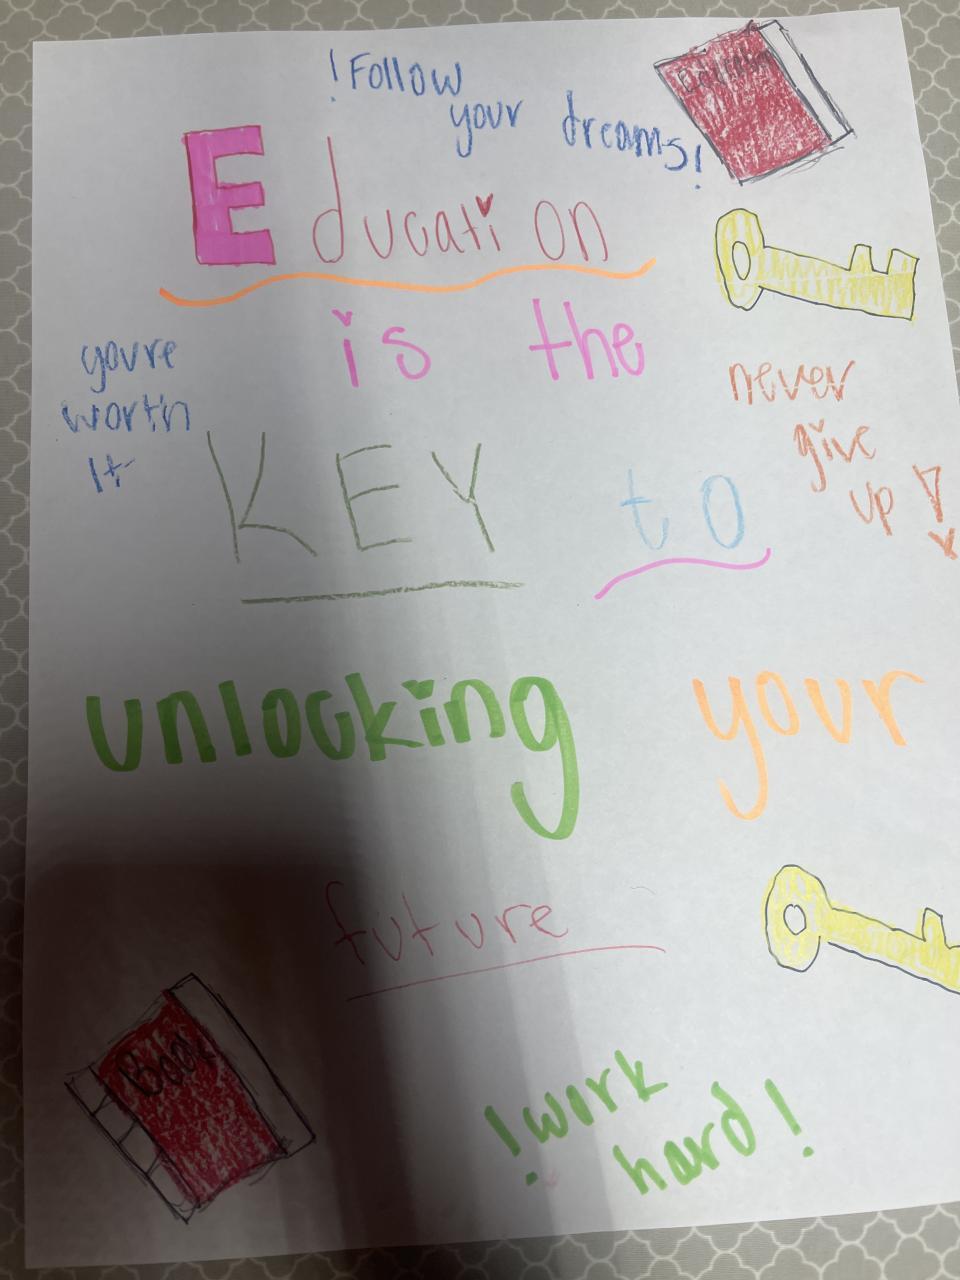 !Follow
your dreams!
Education
is the
youre
worth
It
never
give
up!
KEY to
unlocking your
future
Book
!work
hard!